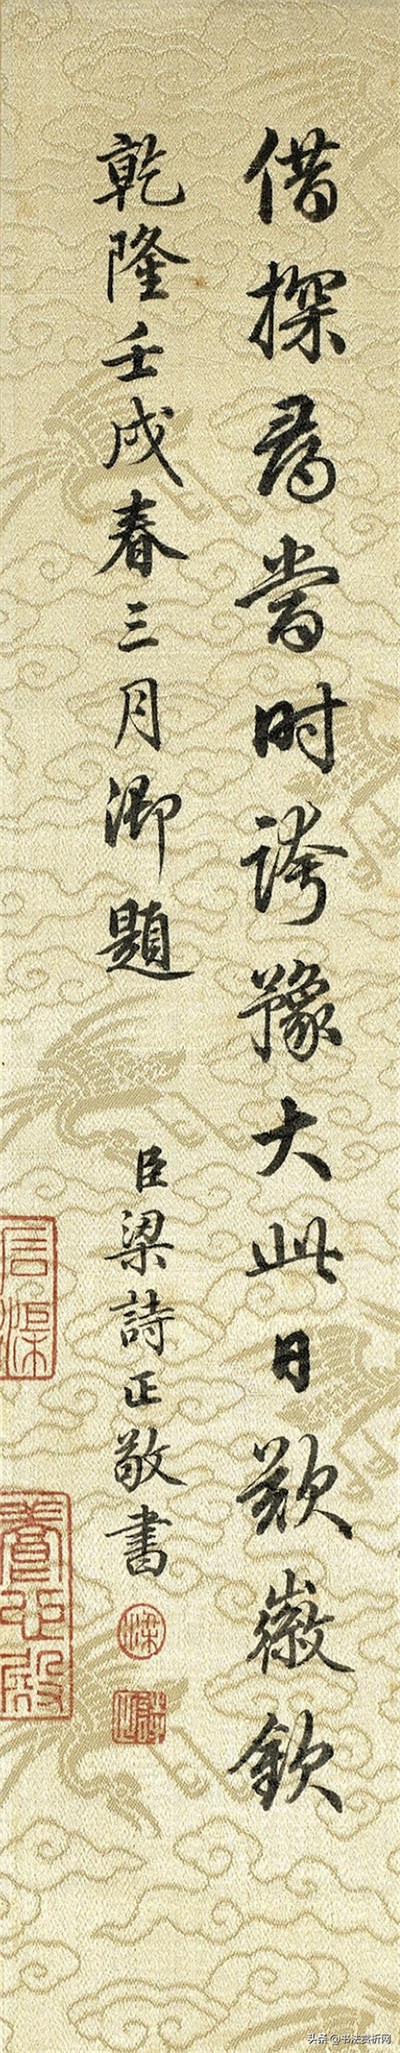 借探尋當时誇豫大此日歎徽欽
乾隆壬戌春三月御題
臣梁詩正敬書
養心殿
头条 @书法赏析网